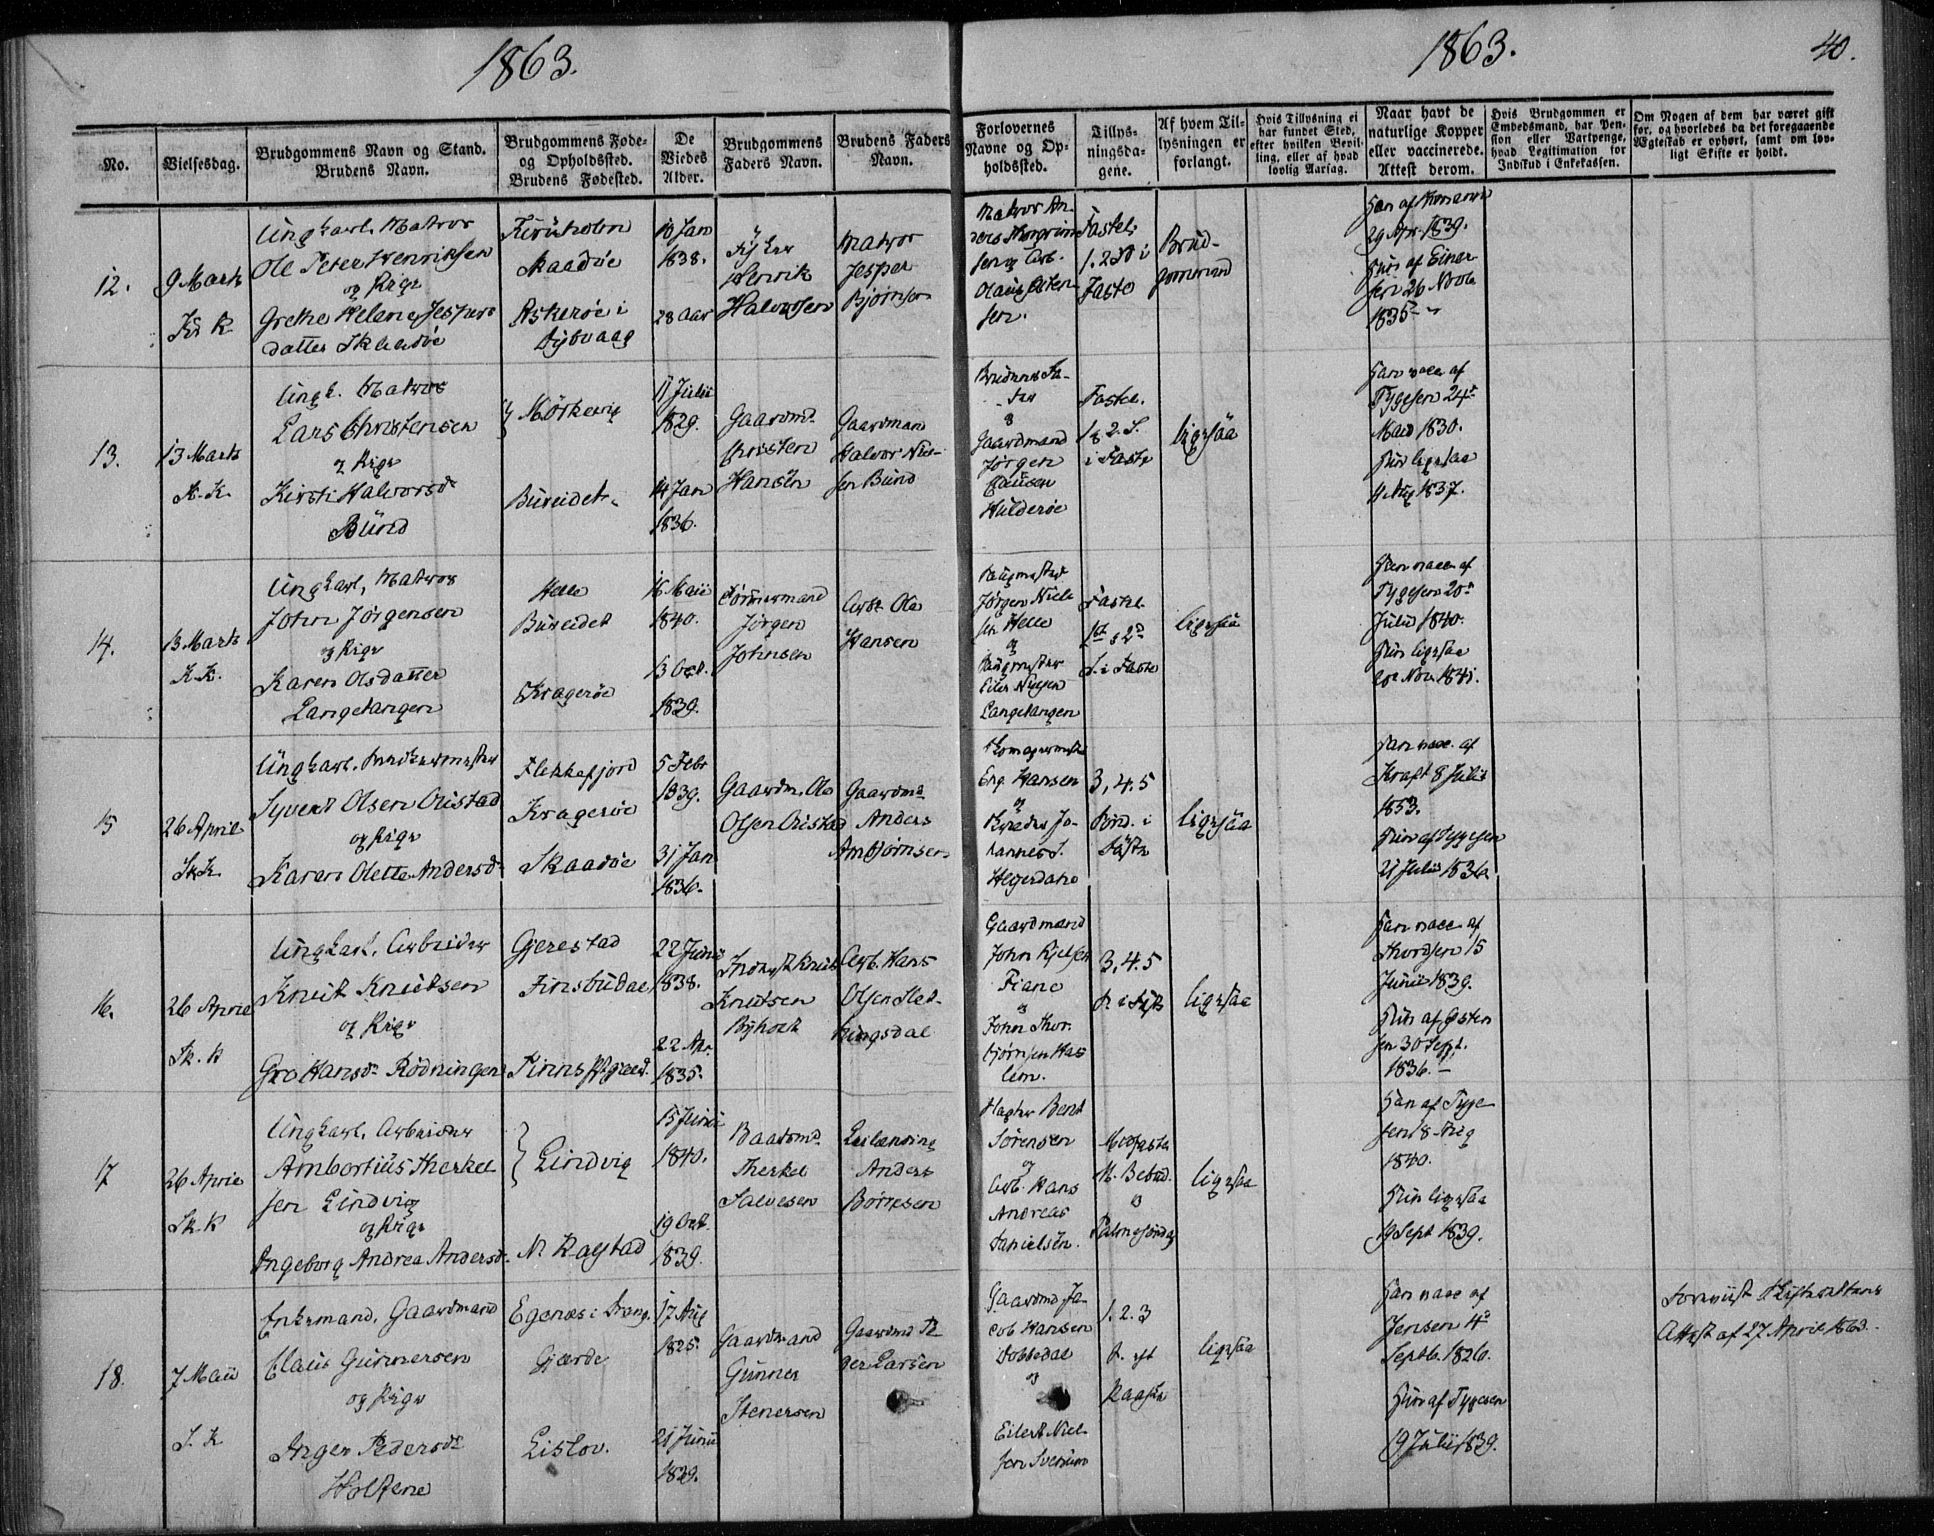 1863.
1863.
40.
No.
Vielsesdag.
Brudgommens Navn og Stand.
Brudens Navn.
Brudgommens Føde-
og Opholdssted.
Brudens Fødested.
De
Viedes
Alder.
Brudgommens
Faders Navn.
Brudens Faders
Navn.
Forlovernes
Navne og Op-
holdssted.
Tillys-
ningsda-
gene.
Af hvem Til-
lysningen er
forlangt.
Hvis Tillysning ei
har fundet Sted,
efter hvilken Bevil-
ling, eller af hvad
lovlig Aarsag.
Naar havt de
naturlige Kopper
eller vaccinerede.
Attest derom.
Hvis Brudgommen er
Embedsmand, har Pen-
sion eller Vartpenge,
hvad Legitimation for
Indskud i Enkekassen.
Om Nogen af dem har været gift
før, og hvorledes da det foregaaende
Ægteskab er ophørt, samt om lov-
ligt Skifte er holdt.
12.
9 Marts
Kr K.
Ungkarl, Matros
Ole Peter Henriksen
og Pige
Grethe Helene Jespers
datter Skaadøe
Skaadøe
Askerøe i
Dybvaag
10 Jan
1838.
28 Aar
Henrik
Halvorsen
Matros
Jesper
Bjørnsen
Matros An-
sen.
Fastel.
1. 2 S i
Faste
Brud-
gommen
29 Apr. 1839.
Hun af Einer
sen 26 Novb
1835
13.
13 Marts
K. K.
Ungk. Matros
Lars Christensen
og Pige
Kirsti Halvorsd.
Bund
Mørkevig
Bureidet
11 Julii
1829.
14 Jan
1836.
Gaardmd.
Christen
Hansen
Gaardmand
Halvor Niel-
sen Bund
Brudens Fa-
der
og
Gaardmand
Jørgen
Clausen
Hulderøe
Fastel.
1 & 2. S.
i Faste
ligesaa
Han vacc af
Tygesen 24de
1830.
Hun ligesaa
4 Aug 1837.
14.
13 Marts
K. K.
Ungkarl, Matros
John Jørgensen
og Pige
Karen Olsdatter
Langetangen
Helle
Bureidet
Kragerøe
16 Maii
1840.
13 Oct.
1839.
Tømmermand
Jørgen
Johnsen
Arb. Ole
Hansen
Jørgen Niel
sen Helle
og
Eiler Nielsen
Langetangen
Fastel.
1ste & 2den
S. i Faste
ligesaa
Han vacc af
Tygesen 20de
Julii 1840.
Hun ligesaa
Nov. 1841.
15
26 April
Sk. K.
Ungkarl, Snedkermester
Syvert Olsen Ouistad
og Pige
Karen Olette Andersd.
Flekkefjord
Kragerøe
Skaadøe
5 Febr
1839.
31 Jan
1836.
Gaardm. Ole
Olsen Ouistad
Gaardmd.
Anders
Ambjørnsen
Skomagermester
Eng. Hansen
og
Jo-
hannes J.
Hegerdahl
3, 4. 5
Sønd. i
Faste
ligesaa
Han vacc. af
Kraft 8 Julii
1853.
Hun af Tygesen
21 Julii 1836.
16.
26 April
Sk. K
Ungkarl, Arbeider
Knut Knutsen
og Pige
Gro Hansd. Rødningen
Gjerestad
Finsbudal
22 Junii
1838.
22 Apr.
1835.
Inderst Knut
Knutsen
Byholt
Arb. Hans
Olsen Slet-
tingsdal
Gaardmand
John Kjelsen
Fiane
og
John Thor-
bjørnsen Has
lem.
3, 4. 5
S. i Faste
ligesaa
Han vacc af
Thordsen 15
Junii 1839.
Hun af Østen
sen 30 Sept.
1836.
17
26 April
Sk. K
Ungkarl, Arbeider
Ambortius Therkel
sen Lindvig
og Pige
Ingeborg Andrea Andersd.
Lindvig
N. Ragstad
15 Junii
1840.
19 Oct.
1839.
Baadsmd.
Therkel
Salvesen
Anders
Børresen
Bent
Sørensen
og
Arb. Hans
Andreas
Danielsen.
Midfaste
M. Bebud.
og
Palmesøndag
ligesaa
Han af Tyge
sen 8 Aug
1840.
Hun ligesaa
19 Sept 1839.
18.
7 Maii
S. K
Enkemand, Gaardmand
Claus Gunnersen
og Pige
Anger Pedersd.
Holtene
Egenæs i Drang.
Gjærde
Eislov.
17 Aug
1825.
21 Junii
1829.
Gaardmand
Gunner
Stenersen
Gaardmd Pe
der Larsen
Gaardmd Ja-
cob Hansen
Dobbedal
og
Eilert Niel
sen
1. 2. 3
S. eft
Paaske
ligesaa
Han vacc af
Jensen 4de
Septb. 1826.
Hun af Tygesen
19 Julii 1839.
Forevist Skifterettens
Attest af 27 April 1863.